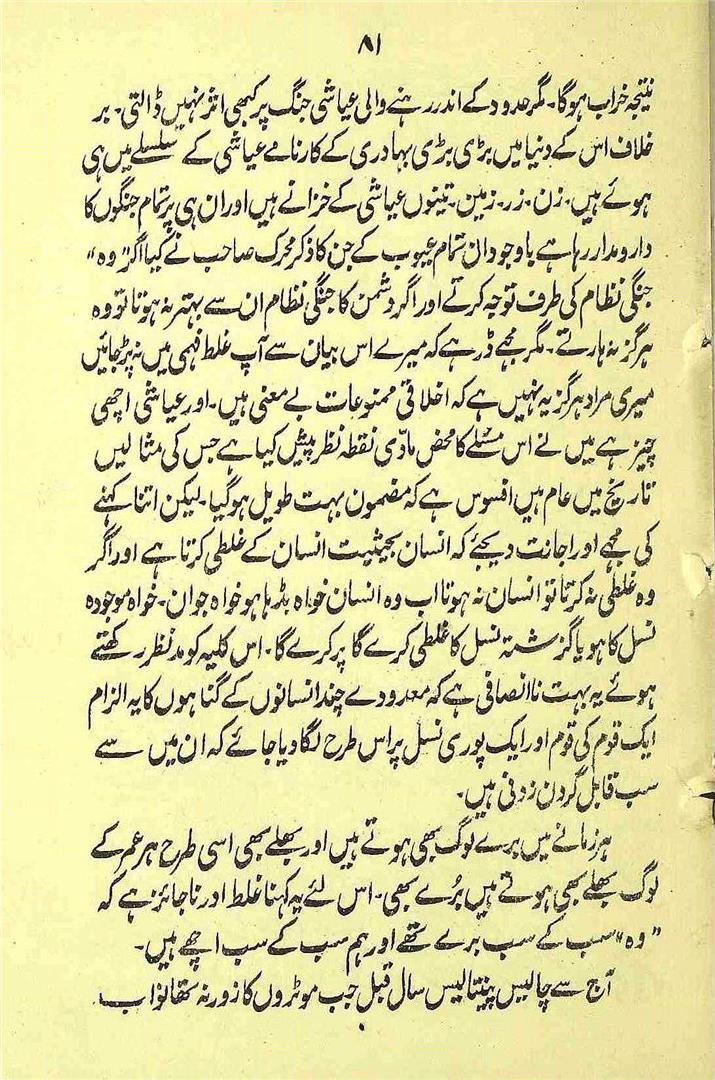 ۸۱
نتیجہ خراب ہوگا۔ مگر حدود کے اندر رہنے والی عیاشی جنگ پر کبھی اثر نہیں ڈالتی۔ بر
خلاف اس کے دنیا میں بڑی بڑی بہادری کے کارنامے عیاشی کے سلسلے میں ہی
ہوئے ہیں۔ زن۔ زر۔ زمین۔ تینوں عیاشی کے خزانے ہیں اور ان ہی پر تمام جنگوں کا
دارومدار رہا ہے باوجود ان تمام عیوب کے جن کا ذکر محرک صاحب نے کیا اگر "وہ"
جنگی نظام کی طرف توجہ کرتے اور اگر دشمن کا جنگی نظام ان سے بہتر نہ ہوتا تو وہ
ہرگز نہ ہارتے۔ مگر مجھے ڈر ہے کہ میرے اس بیان سے آپ غلط فہمی میں نہ پڑجائیں
میری مراد ہرگز یہ نہیں ہے کہ اخلاقی ممنوعات بے معنی ہیں۔ اور عیاشی اچھی
چیز ہے میں نے اس مسئلے کا محض مادّی نقطہ نظر پیش کیا ہے جس کی مثالیں
تاریخ میں عام ہیں افسوس ہے کہ مضمون بہت طویل ہوگیا۔ لیکن اتنا کہنے
کی مجھے اور اجانت دیجئے کہ انسان بحیثیت انسان کے غلطی کرتا ہے اور اگر
وہ غلطی نہ کرتا تو انسان نہ ہوتا اب وہ انسان خواہ بڈہا ہو خواہ جوان۔ خواہ موجودہ
نسل کا ہو یا گزشتہ نسل کا غلطی کرے گا پر کرے گا۔ اس کلیہ کو مدنظر رکھتے
ہوئے یہ بہت ناانصافی ہے کہ معدودے چند انسانوں کے گناہوں کا یہ الزام
ایک قوم کی قوم اور ایک پوری نسل پر اس طرح لگا دیا جائے کہ ان میں سے
سب قابل گردن زدنی ہیں۔
ہر زمانے میں برے لوگ بھی ہوتے ہیں اور بھلے بھی اسی طرح ہر عمر کے
لوگ بھلے بھی ہوتے ہیں بُرے بھی۔ اس لئے یہ کہنا غلط اور ناجائز ہے کہ
"وہ" سب کے سب برے تھے اور ہم سب کے سب اچھے ہیں۔
آج سے چالیس پنتالیس سال قبل جب موٹروں کا زور نہ تھا نواب